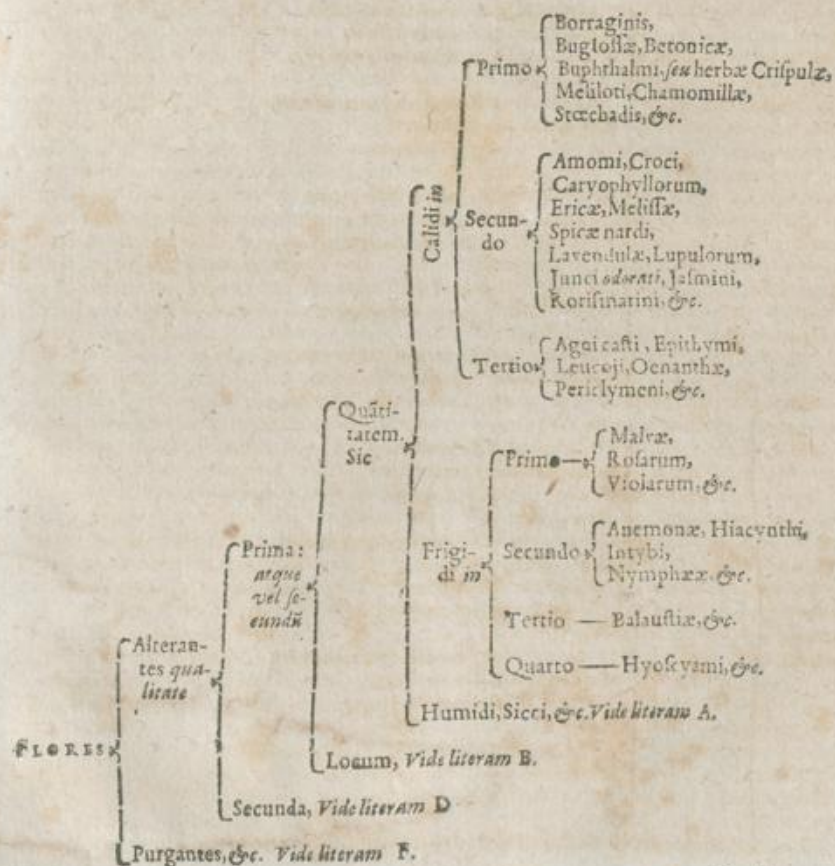 FLORES
Alteran-
tes qua-
litate
Prima:
atque
vel se-
cundũ
Quãti-
tatem.
Sic
Calidi in
Primo
Borraginis,
Buglossæ, Betonicæ,
Buphthalmi, seu herbæ Crispulæ,
Meliloti, Chamomillæ,
Stœchadis, &c.
Secun-
do
Amomi, Croci,
Caryophyllorum,
Ericæ, Melissæ,
Spicæ nardi,
Lavendulæ, Lupulorum,
Junci odorati, Jasmini,
Rorismarini, &c.
Tertio
Agni casti, Epithymi,
Leucoji, Oenanthæ,
Periclymeni, &c.
Frigi-
di in
Primo
Malvæ,
Rosarum,
Violarum, &c.
Secundo
Anemonæ, Hiacynthi,
Intybi,
Nymphææ, &c.
Tertio — Balaustiæ, &c.
Quarto — Hyoscyami, &c.
Humidi, Sicci, &c. Vide literam A.
Locum, Vide literam B.
Secunda, Vide literam D
Purgantes, &c. Vide literam F.